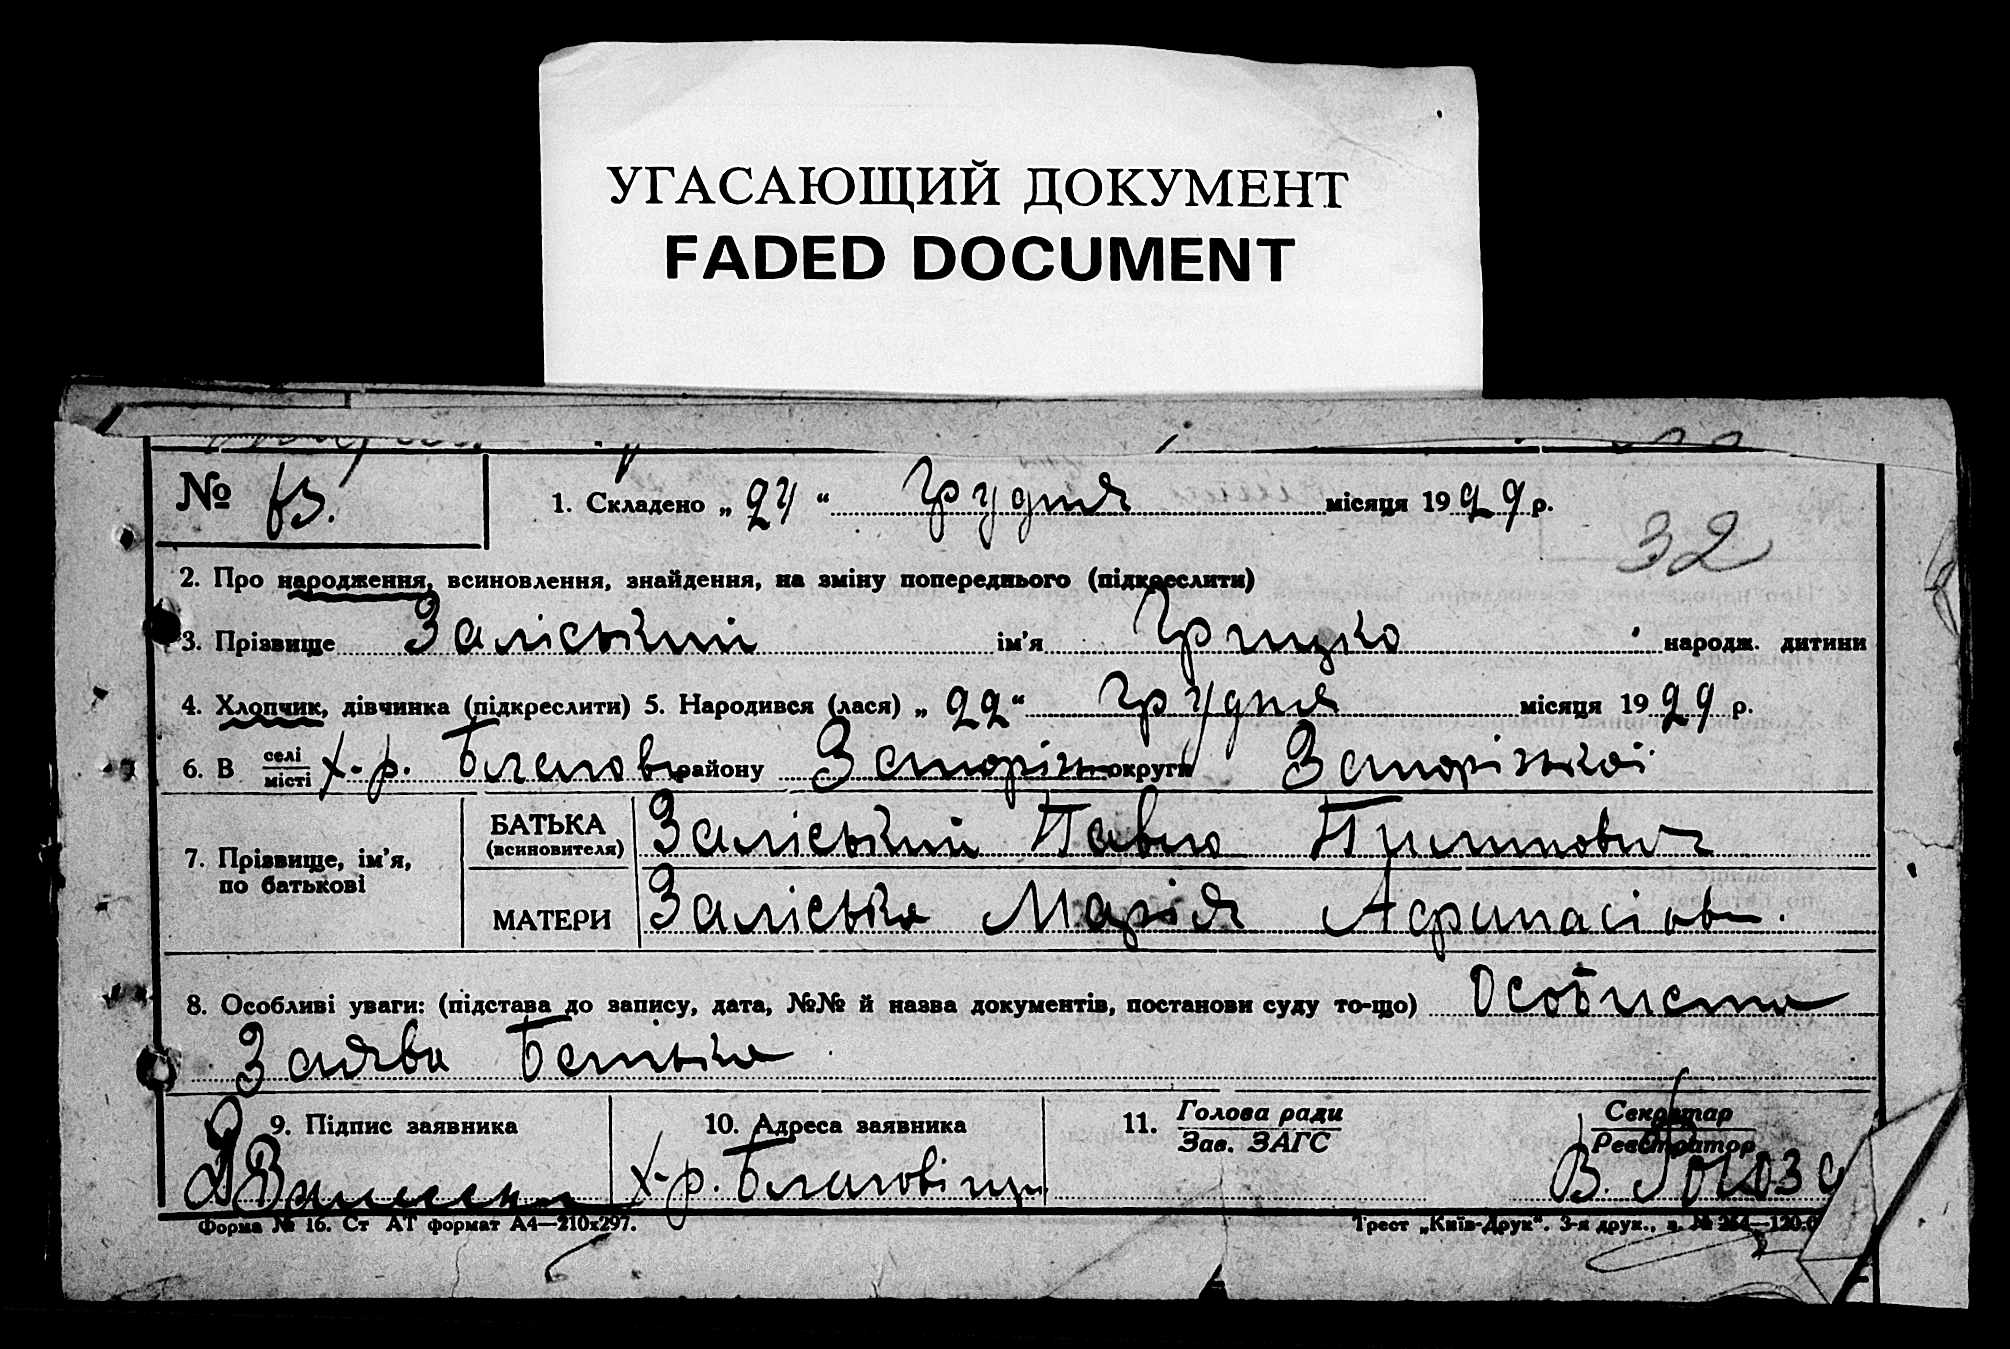 УГАСАЮЩИЙ ДОКУМЕНТ
FADED DOCUMENT
№ 63.
1. Складено „ 24 “ Грудня місяця 1929 р.
32
2. Про народження, всиновлення, знайдення, на зміну попереднього (підкреслити)
3. Прізвище Заліський ім'я Грицко народж. дитини
4. Хлопчик, дівчинка (підкреслити) 5. Народився (лася) „ 22 “ Грудня місяця 1929 р.
6. В селі/місті х-р. Благов району Запоріз округи Запорізької
7. Прізвище, ім'я, по батькові
БАТЬКА (всиновителя) Заліський Павло
МАТЕРИ Заліська Марія Афанасіов.
8. Особливі уваги: (підстава до запису, дата, №№ й назва документів, постанови суду то-що) Особиста
Заява Батька
9. Підпис заявника 10. Адреса заявника 11. Голова ради/Зав. ЗАГС Секретар/Реєстратор
х-р. Благовіщ. В.
Форма № 16. Ст АТ формат А4—210х297. Трест „Київ-Друк“. 3-я друк., з. № 264—120.0